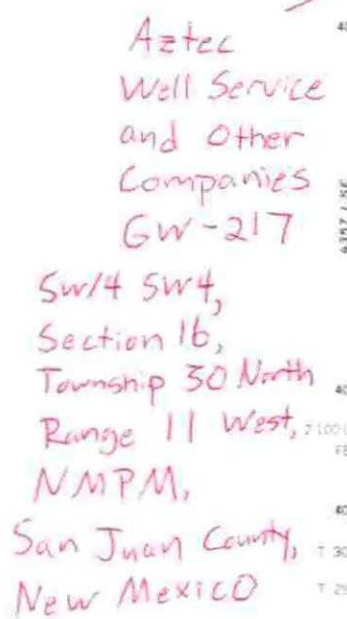 Aztec
Well Service
and Other
Companies
GW-217
SW/4 SW4,
Section 16,
Township 30 North
Range 11 West,
NMPM,
San Juan County,
New Mexico